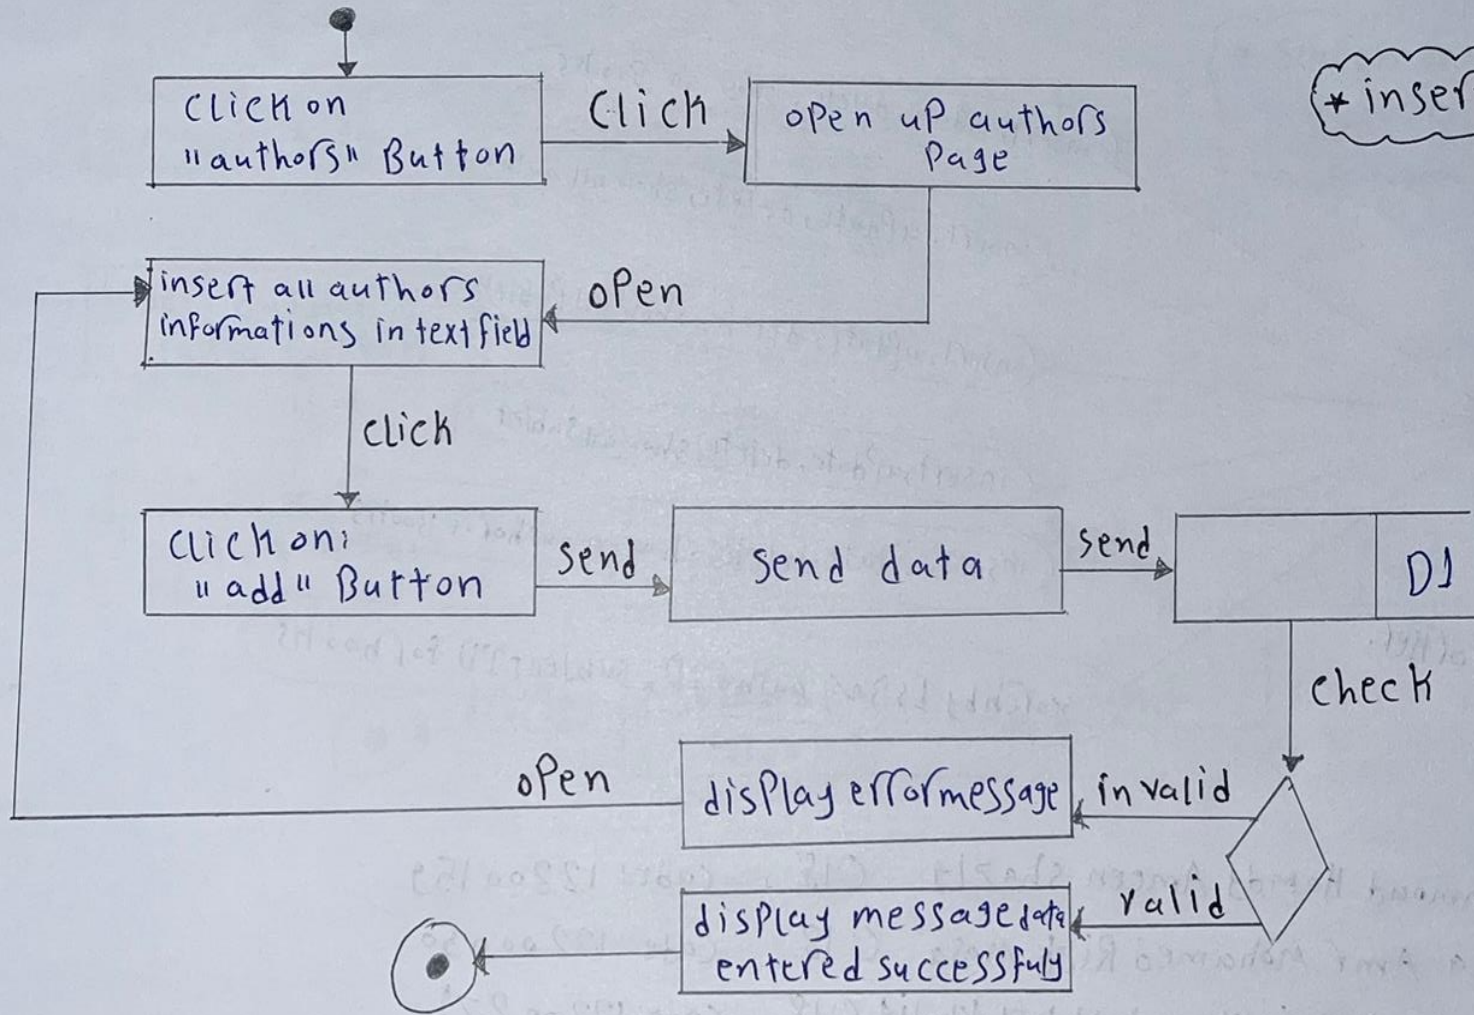 Click on
"authors" Button
Click
open up authors
Page
* inser
insert all authors
informations in text field
open
click
Click on:
"add" Button
send
send data
send
D1
check
open
display error message
invalid
display message data
entered successfuly
valid